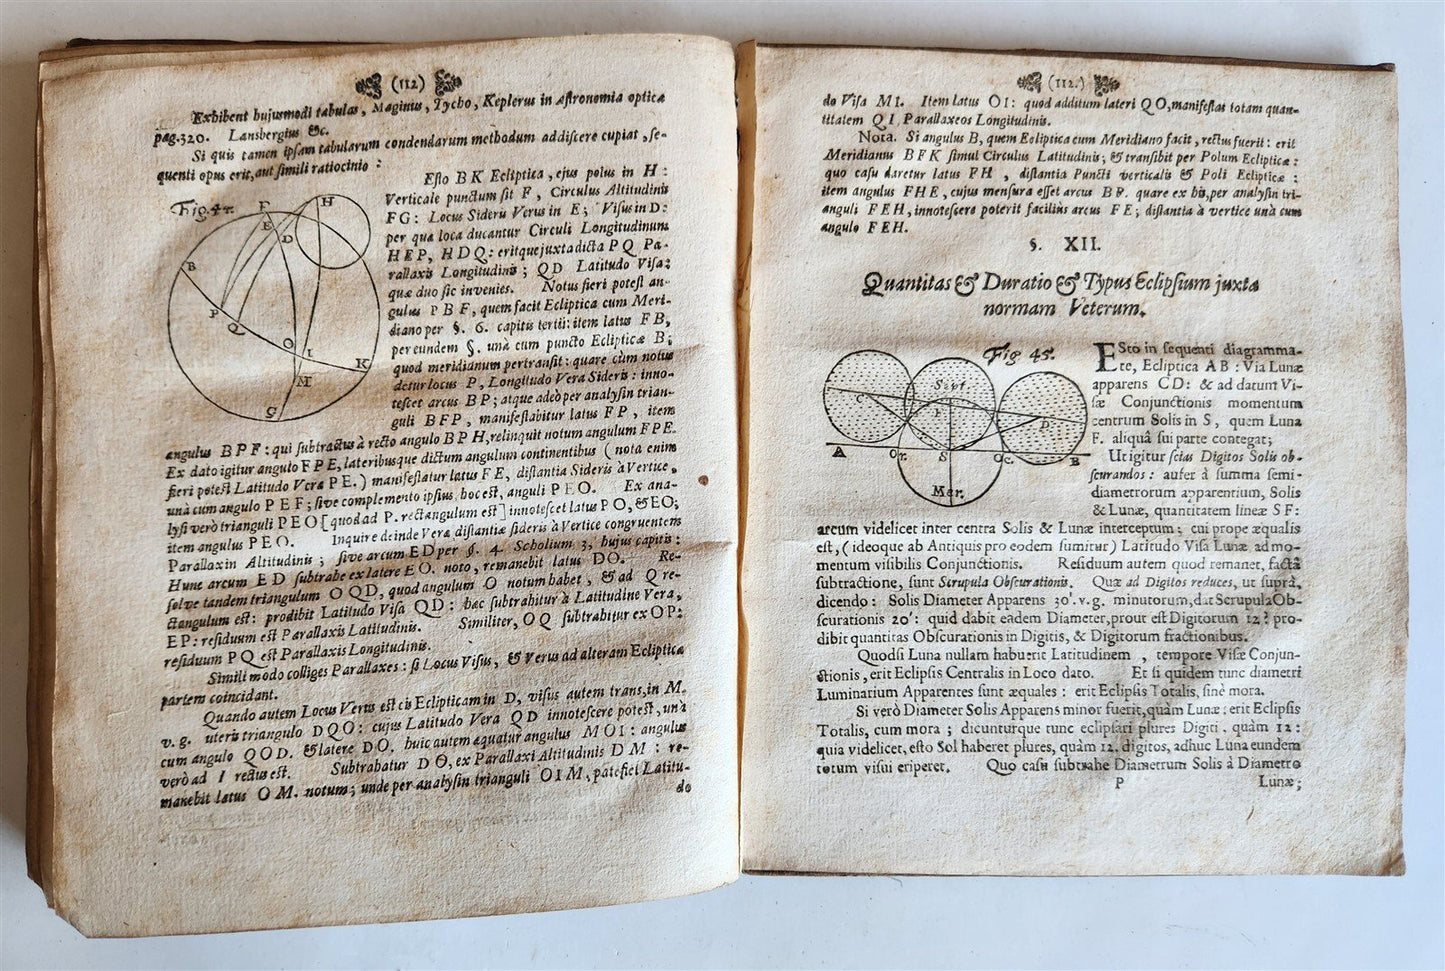 (112)
Exhibent hujusmodi tabulas, Maginus, Tycho, Keplerus in Astronomia optica
pag. 320. Lansbergius &c.
Si quis tamen ipsam tabularum condendarum methodum addiscere cupiat, se-
quenti opus erit, aut simili ratiocinio:
Fig. 44.
F
H
E
D
B
P
Q
O
I
K
M
G
Esto BK Ecliptica, ejus polus in H:
Verticale punctum sit F, Circulus Altitudinis
FG: Locus Sideris Verus in E; Visus in D:
per quæ loca ducantur Circuli Longitudinum
HEP, HDQ: eritque juxta dicta PQ Pa-
rallaxis Longitudinis; QD Latitudo Visa:
quæ duo sic invenies. Notus fieri potest an-
gulus PBF, quem facit Ecliptica cum Meri-
diano per §. 6. capitis tertii: item latus FB,
per eundem §. unà cum puncto Eclipticæ B;
quod meridianum pertransit: quare cùm notus
detur locus P, Longitudo Vera Sideris: inno-
tescet arcus BP; atque adeò per analysin trian-
guli BFP, manifestabitur latus FP, item
angulus BPF: qui subtractus à recto angulo BPH, relinquit notum angulum FPE.
Ex dato igitur angulo FPE, lateribusque dictum angulum continentibus (nota enim
fieri potest Latitudo Vera PE.) manifestatur latus FE, distantia Sideris à Vertice,
unà cum angulo PEF; sive complemento ipsius, hoc est, anguli PEO. Ex ana-
lysi verò trianguli PEO [quod ad P. rectangulum est] innotescet latus PO, & EO;
item angulus PEO. Inquire deinde Veræ distantiæ sideris à Vertice congruentem
Parallaxin Altitudinis; sive arcum ED per §. 4. Scholium 3, hujus capitis:
Hunc arcum ED subtrahe ex latere EO. noto, remanebit latus DO. Re-
solve tandem triangulum OQD, quod angulum O notum habet, & ad Q re-
ctangulum est: prodibit Latitudo Visa QD: hæc subtrahitur à Latitudine Vera,
EP: residuum est Parallaxis Latitudinis. Similiter, OQ subtrahitur ex OP:
residuum PQ est Parallaxis Longitudinis.
Simili modo colliges Parallaxes: si Locus Visus, & Verus ad alteram Eclipticæ
partem coincidant.
Quando autem Locus Verus est cis Eclipticam in D, visus autem trans, in M.
v. g. uteris triangulo DQO: cujus Latitudo Vera QD innotescere potest, unà
cum angulo QOD. & latere DO. huic autem æquatur angulus MOI: angulus
verò ad I rectus est. Subtrabatur DO, ex Parallaxi Altitudinis DM: re-
manebit latus OM. notum; unde per analysin trianguli OIM, patefiet Latitu-
do
(112.)
do Visa MI. Item latus OI: quod additum lateri QO, manifestat totam quan-
titatem QI Parallaxeos Longitudinis.
Nota. Si angulus B, quem Ecliptica cum Meridiano facit, rectus fuerit: erit
Meridianus BFK simul Circulus Latitudinis; & transibit per Polum Eclipticæ:
quo casu daretur latus FH, distantia Puncti verticalis & Poli Eclipticæ:
item angulus FHE, cujus mensura esset arcus BP. quare ex his, per analysin tri-
anguli FEH, innotescere poterit facilius arcus FE; distantia à vertice unà cum
angulo FEH.
§. XII.
Quantitas & Duratio & Typus Eclipsium juxta
normam Veterum.
Fig. 45.
Sept.
C
F
D
A
Or.
S
Oc.
B
Mer.
ESto in sequenti diagramma-
te, Ecliptica AB: Via Lunæ
apparens CD: & ad datum Vi-
sæ Conjunctionis momentum
centrum Solis in S, quem Luna
F. aliquâ sui parte contegat;
Ut igitur scias Digitos Solis ob-
scurandos: aufer à summa semi-
diametrorum apparentium, Solis
& Lunæ, quantitatem lineæ SF:
arcum videlicet inter centra Solis & Lunæ interceptum; cui prope æqualis
est, (ideoque ab Antiquis pro eodem sumitur) Latitudo Visa Lunæ ad mo-
mentum visibilis Conjunctionis. Residuum autem quod remanet, factâ
subtractione, sunt Scrupula Obscurationis. Quæ ad Digitos reduces, ut suprà,
dicendo: Solis Diameter Apparens 30'. v. g. minutorum, dat Scrupula Ob-
scurationis 20': quid dabit eadem Diameter, prout est Digitorum 12? pro-
dibit quantitas Obscurationis in Digitis, & Digitorum fractionibus.
Quodsi Luna nullam habuerit Latitudinem, tempore Visæ Conjun-
ctionis, erit Eclipsis Centralis in Loco dato. Et si quidem tunc diametri
Luminarium Apparentes sunt æquales: erit Eclipsis Totalis, sinè mora.
Si verò Diameter Solis Apparens minor fuerit, quàm Lunæ: erit Eclipsis
Totalis, cum mora; dicunturque tunc eclipsari plures Digiti. quàm 12:
quia videlicet, esto Sol haberet plures, quàm 12. digitos, adhuc Luna eundem
totum visui eriperet. Quo casu subtrahe Diametrum Solis à Diametro
P
Lunæ;